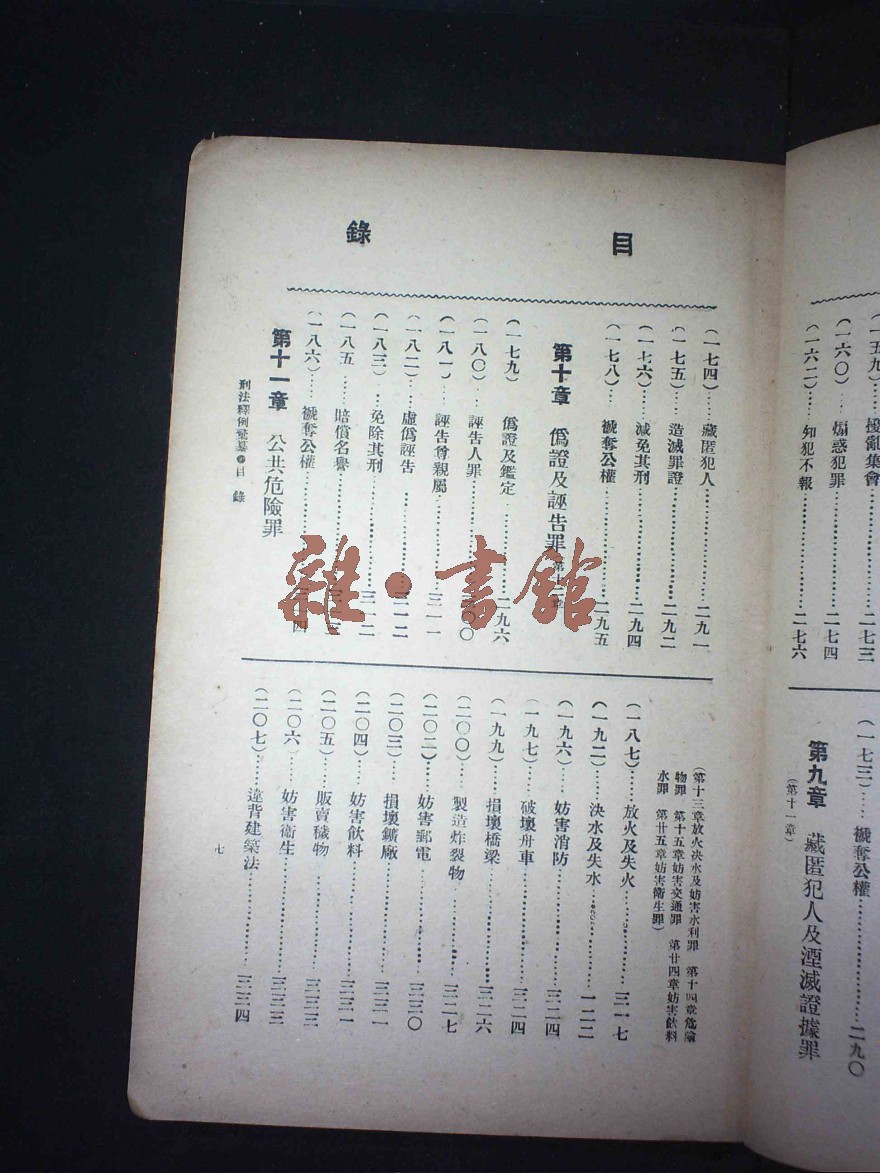 (一五九)……擾亂集會……二七三
(一六〇)……煽惑犯罪……二七四
(一六二)……知犯不報……二七六
(一七三)……褫奪公權……二九〇
第九章 藏匿犯人及湮滅證據罪
(第十一章)
目錄
(一七四)……藏匿犯人……二九一
(一七五)……造滅罪證……二九二
(一七六)……減免其刑……二九四
(一七八)……褫奪公權……二九五
第十章 僞證及誣告罪
(一七九) 僞證及鑑定……二九六
(一八〇)……誣告人罪……三〇〇
(一八一)……誣告尊親屬……三一一
(一八二)……虛僞誣告……三一二
(一八三)……免除其刑……三一二
(一八五……賠償名譽……三一三
(一八六)……褫奪公權……三一四
第十一章 公共危險罪
(第十三章放火決水及妨害水利罪 第十四章危險
物罪 第十五章妨害交通罪 第廿四章妨害飲料
水罪 第廿五章妨害衛生罪)
(一八七)……放火及失火……三一七
(一九二)……決水及失水……
(一九六)……妨害消防……三二四
(一九七)……破壞舟車……三二四
(一九九)……損壞橋梁……三二六
(二〇〇)……製造炸裂物……三二七
(二〇二)……妨害郵電……三三〇
(二〇三)……損壞鑛廠……三三一
(二〇四)……妨害飲料……三三一
(二〇五)……販賣穢物……三三三
(二〇六)……妨害衛生……三三三
(二〇七)……違背建築法……三三四
刑法釋例彙纂●目錄
七
雜·書館